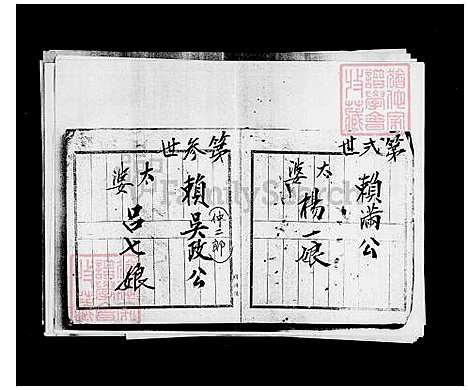 第弍世
賴滿公
太婆 楊一娘
第叁世
賴吳政公
仲二郎
太婆 吕七娘
FamilySearch